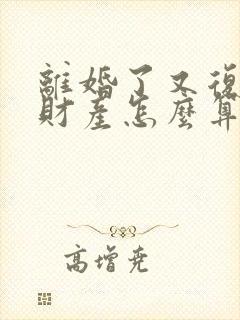 離婚了又復
財產怎麼算
高增堯